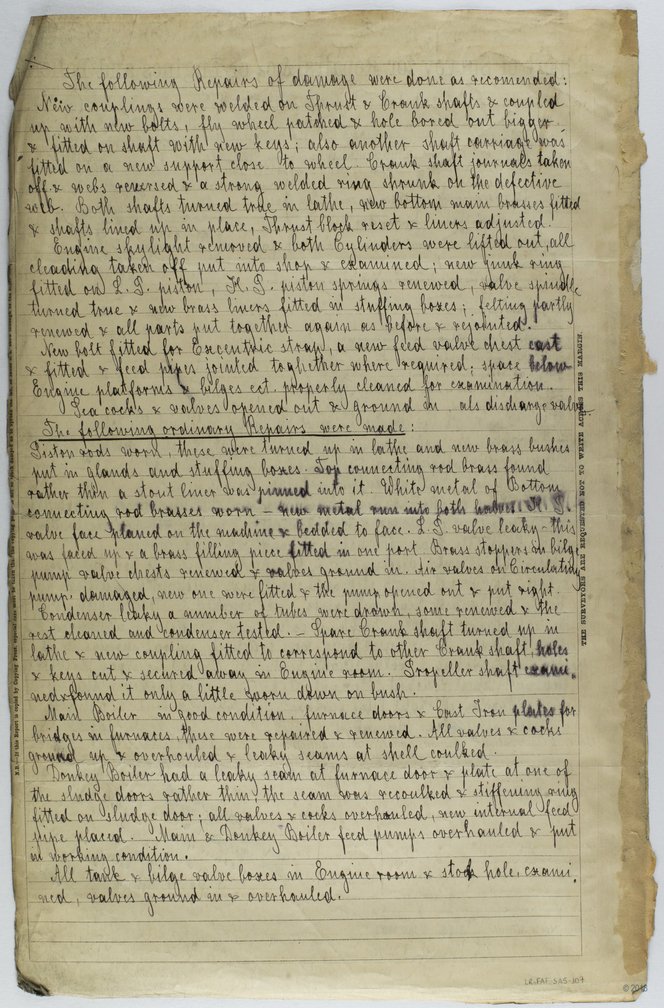 The following Repairs of damage were done as recomended:
New couplings were welded on Thrust & Crank shafts & coupled
up with new bolts, fly wheel patched & hole bored out bigger
& fitted on shaft with new keys; also another shaft carriage was
fitted on a new support close to wheel. Crank shaft journals taken
off & webs reversed & a strong welded ring shrunk on the defective
web. Both shafts turned true in lathe, new bottom main brasses fitted
& shafts lined up in place, Thrust block reset & liners adjusted.
Engine skylight removed & both Cylinders were lifted out, all
cleading taken off put into shop & examined; new junk ring
fitted on L.P. piston, H.P. piston springs renewed, valve spindle
turned true & new brass liners fitted in stuffing boxes; felting partly
renewed & all parts put together again as before & rejointed.
New bolt fitted for Excentric strap, a new feed valve chest cast
& fitted & feed pipes jointed toghether where required; space below
Engine platforms & bilges ect. properly cleaned for examination.
Sea cocks & valves opened out & ground in als discharge valve
The following ordinary Repairs were made:
Piston rods worn, these were turned up in lathe and new brass bushes
put in glands and stuffing boxes. Top connecting rod brass found
rather thin a stout liner was pinned into it. White metal of Bottom
connecting rod brasses worn - new metal run into both halves. H.P.
valve face planed on the machine & bedded to face. L.P. valve leaky - this
was faced up & a brass filling piece fitted in one port. Brass stoppers in bilge
pump valve chests renewed & valves ground in. Air valves on Circulating
pump damaged, new one were fitted & the pump opened out & put right.
Condenser leaky a number of tubes were drawn, some renewed & the
rest cleaned and condenser tested. - Spare Crank shaft turned up in
lathe & new coupling fitted to correspond to other Crank shaft, holes
& keys cut & secured away in Engine room. Propeller shaft exami-
ned & found it only a little worn down on bush.
Main Boiler in good condition, furnace doors & Cast Iron plates for
bridges in furnaces, these were repaired & renewed. All valves & cocks
ground up & overhouled & leaky seams at shell coulked.
Donkey Boiler had a leaky seam at furnace door & plate at one of
the sludge doors rather thin; the seam was recoulked & stiffening ring
fitted on sludge door; all valves & cocks overhauled, new internal feed
pipe placed. Main & Donkey Boiler feed pumps overhauled & put
in working condition.
All tank & bilge valve boxes in Engine room & stock hole, exami-
ned, valves ground in & overhauled.
THE SURVEYORS ARE REQUESTED NOT TO WRITE ACROSS THIS MARGIN
LR-FAF-SAS-107
© 2018